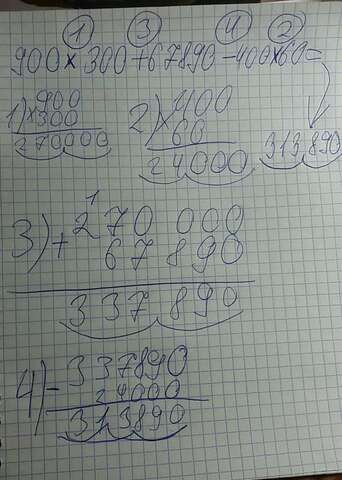 1 3 4 2
900 × 300 + 67890 - 400 × 60 =
313 890
1) 900
× 300
270000
2) 400
× 60
24000
3) 1
270 000
+ 67 890
337 890
4) 337890
- 24000
313890